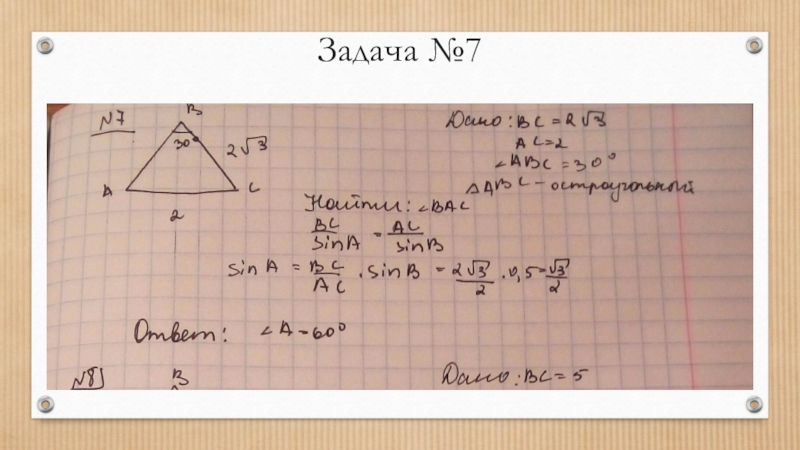 Задача №7
№7
B
30°
2√3
A
C
2
Дано: BC = 2√3
AC = 2
∠ABC = 30°
△ABC – остроугольный
Найти: ∠BAC
BC/sinA = AC/sinB
sinA = BC/AC · sinB = 2√3/2 · 0,5 = √3/2
Ответ: ∠A = 60°
№8
B
Дано: BC = 5